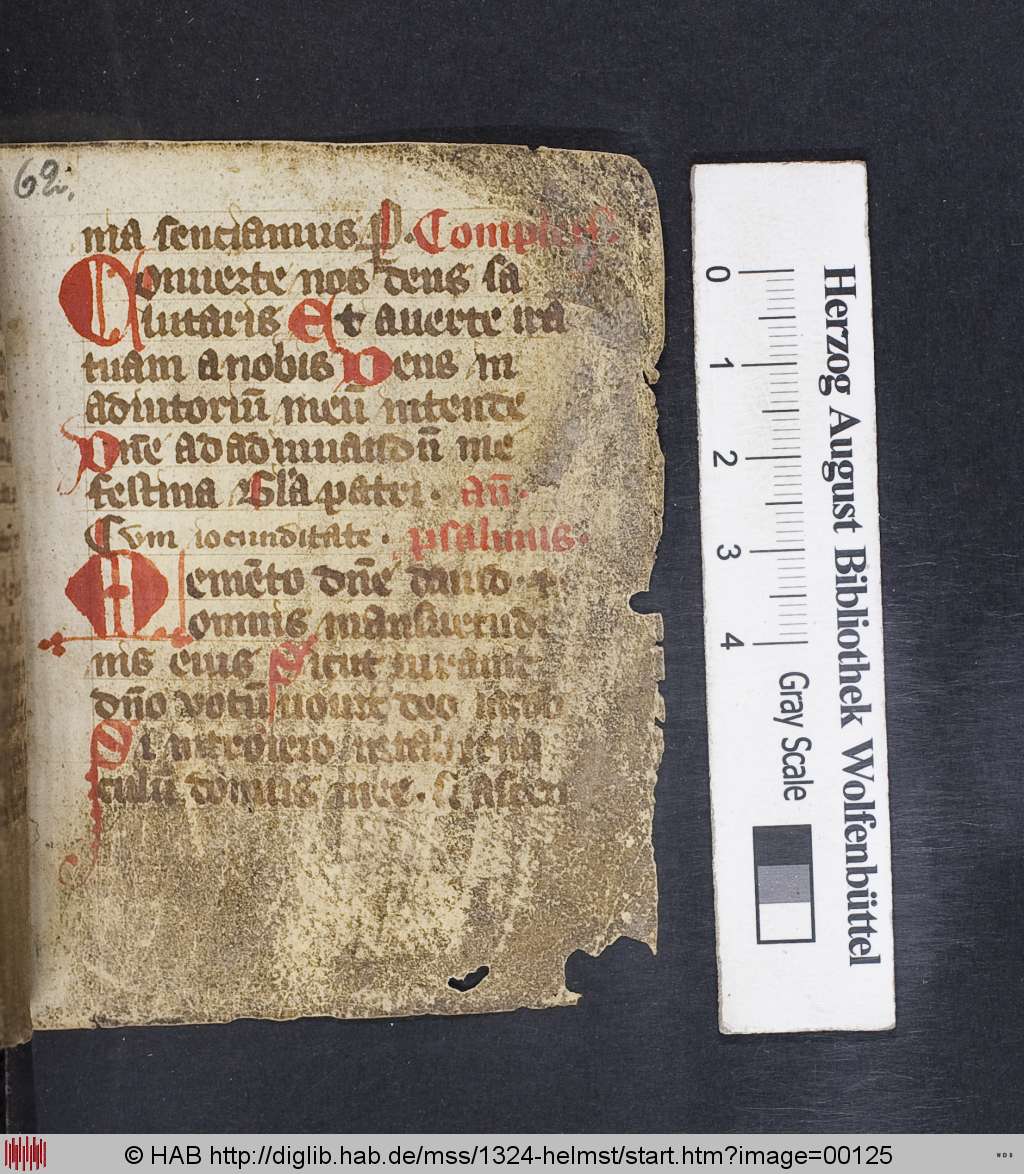 62
ma senciamus. P. Complet.
Conuerte nos deus sa
lutaris Et auerte ira
tuam a nobis Deus in
adiutoriū meū intende
Dn̄e ad adiuuandū me
festina Gl'a patri. an̄.
Cum iocunditate. psalmus.
Memēto dn̄e dauid &
omnis mansuetudi
nis eius Sicut iurauit
dn̄o votū vouit deo iacob
Si introiero in tab'rna
culū domus mee. Si ascen
0 1 2 3 4
Gray Scale
Herzog August Bibliothek Wolfenbüttel
© HAB http://diglib.hab.de/mss/1324-helmst/start.htm?image=00125
WDB